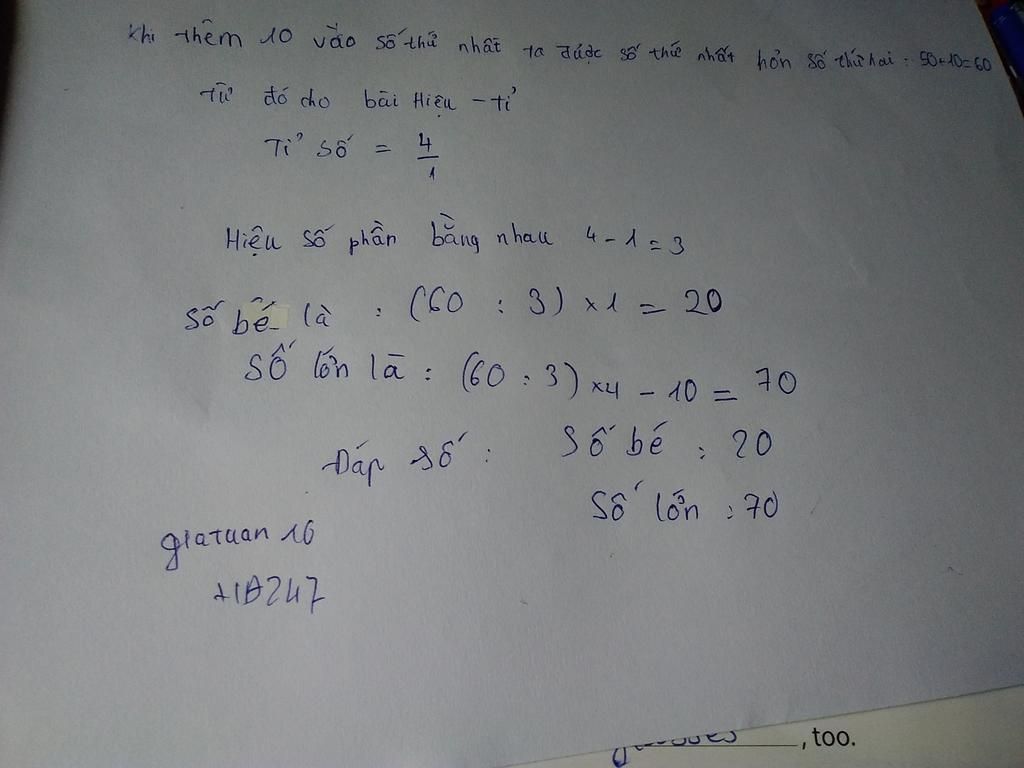 Khi thêm 10 vào số thứ nhất ta được số thứ nhất hơn số thứ hai : 50+10=60
Từ đó cho bài Hiệu - tỉ
Tỉ số = 4/1
Hiệu số phần bằng nhau 4 - 1 = 3
Số bé là : (60 : 3) x 1 = 20
Số lớn là : (60 : 3) x 4 - 10 = 70
Đáp số : Số bé : 20
Số lớn : 70
giatuan 16
, too.